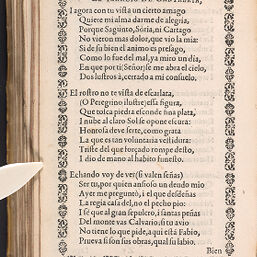 I agora con tu vista un cierto amago
Quiere mi alma darme de alegria,
Porque Sagunto, Soria, ni Cartago
No vieron mas dolor, que vio la mia:
Si desu bien el animo es presago,
Como lo fue del mal, ya miro un dia,
En que por ti Señor se me abra el cielo,
Dos lustros à, cerrado a mi consuelo.
El rostro no te vista de escarlata,
(O Peregrino ilustre) essa figura,
Que tosca piedra esconde una plata,
I nube al claro Sol se opone escura:
Honrosa deve serte, como grata
La que es tan voluntaria vestidura:
Triste del que forçado rompe desto,
I dio de mano al habito funesto.
Echando voy de ver (si valen señas)
Ser tu, por quien ansioso un deudo mio
Ayer me preguntò, i el que desdeñas
La regia casa del, no el pecho pio:
I sè que al gran sepulcro, i santas peñas
Del monte vas Calvario, si to avio
No tiene lo que pide, aqui està Fabio,
Prueva si son sus obras, qual su labio.
Bien